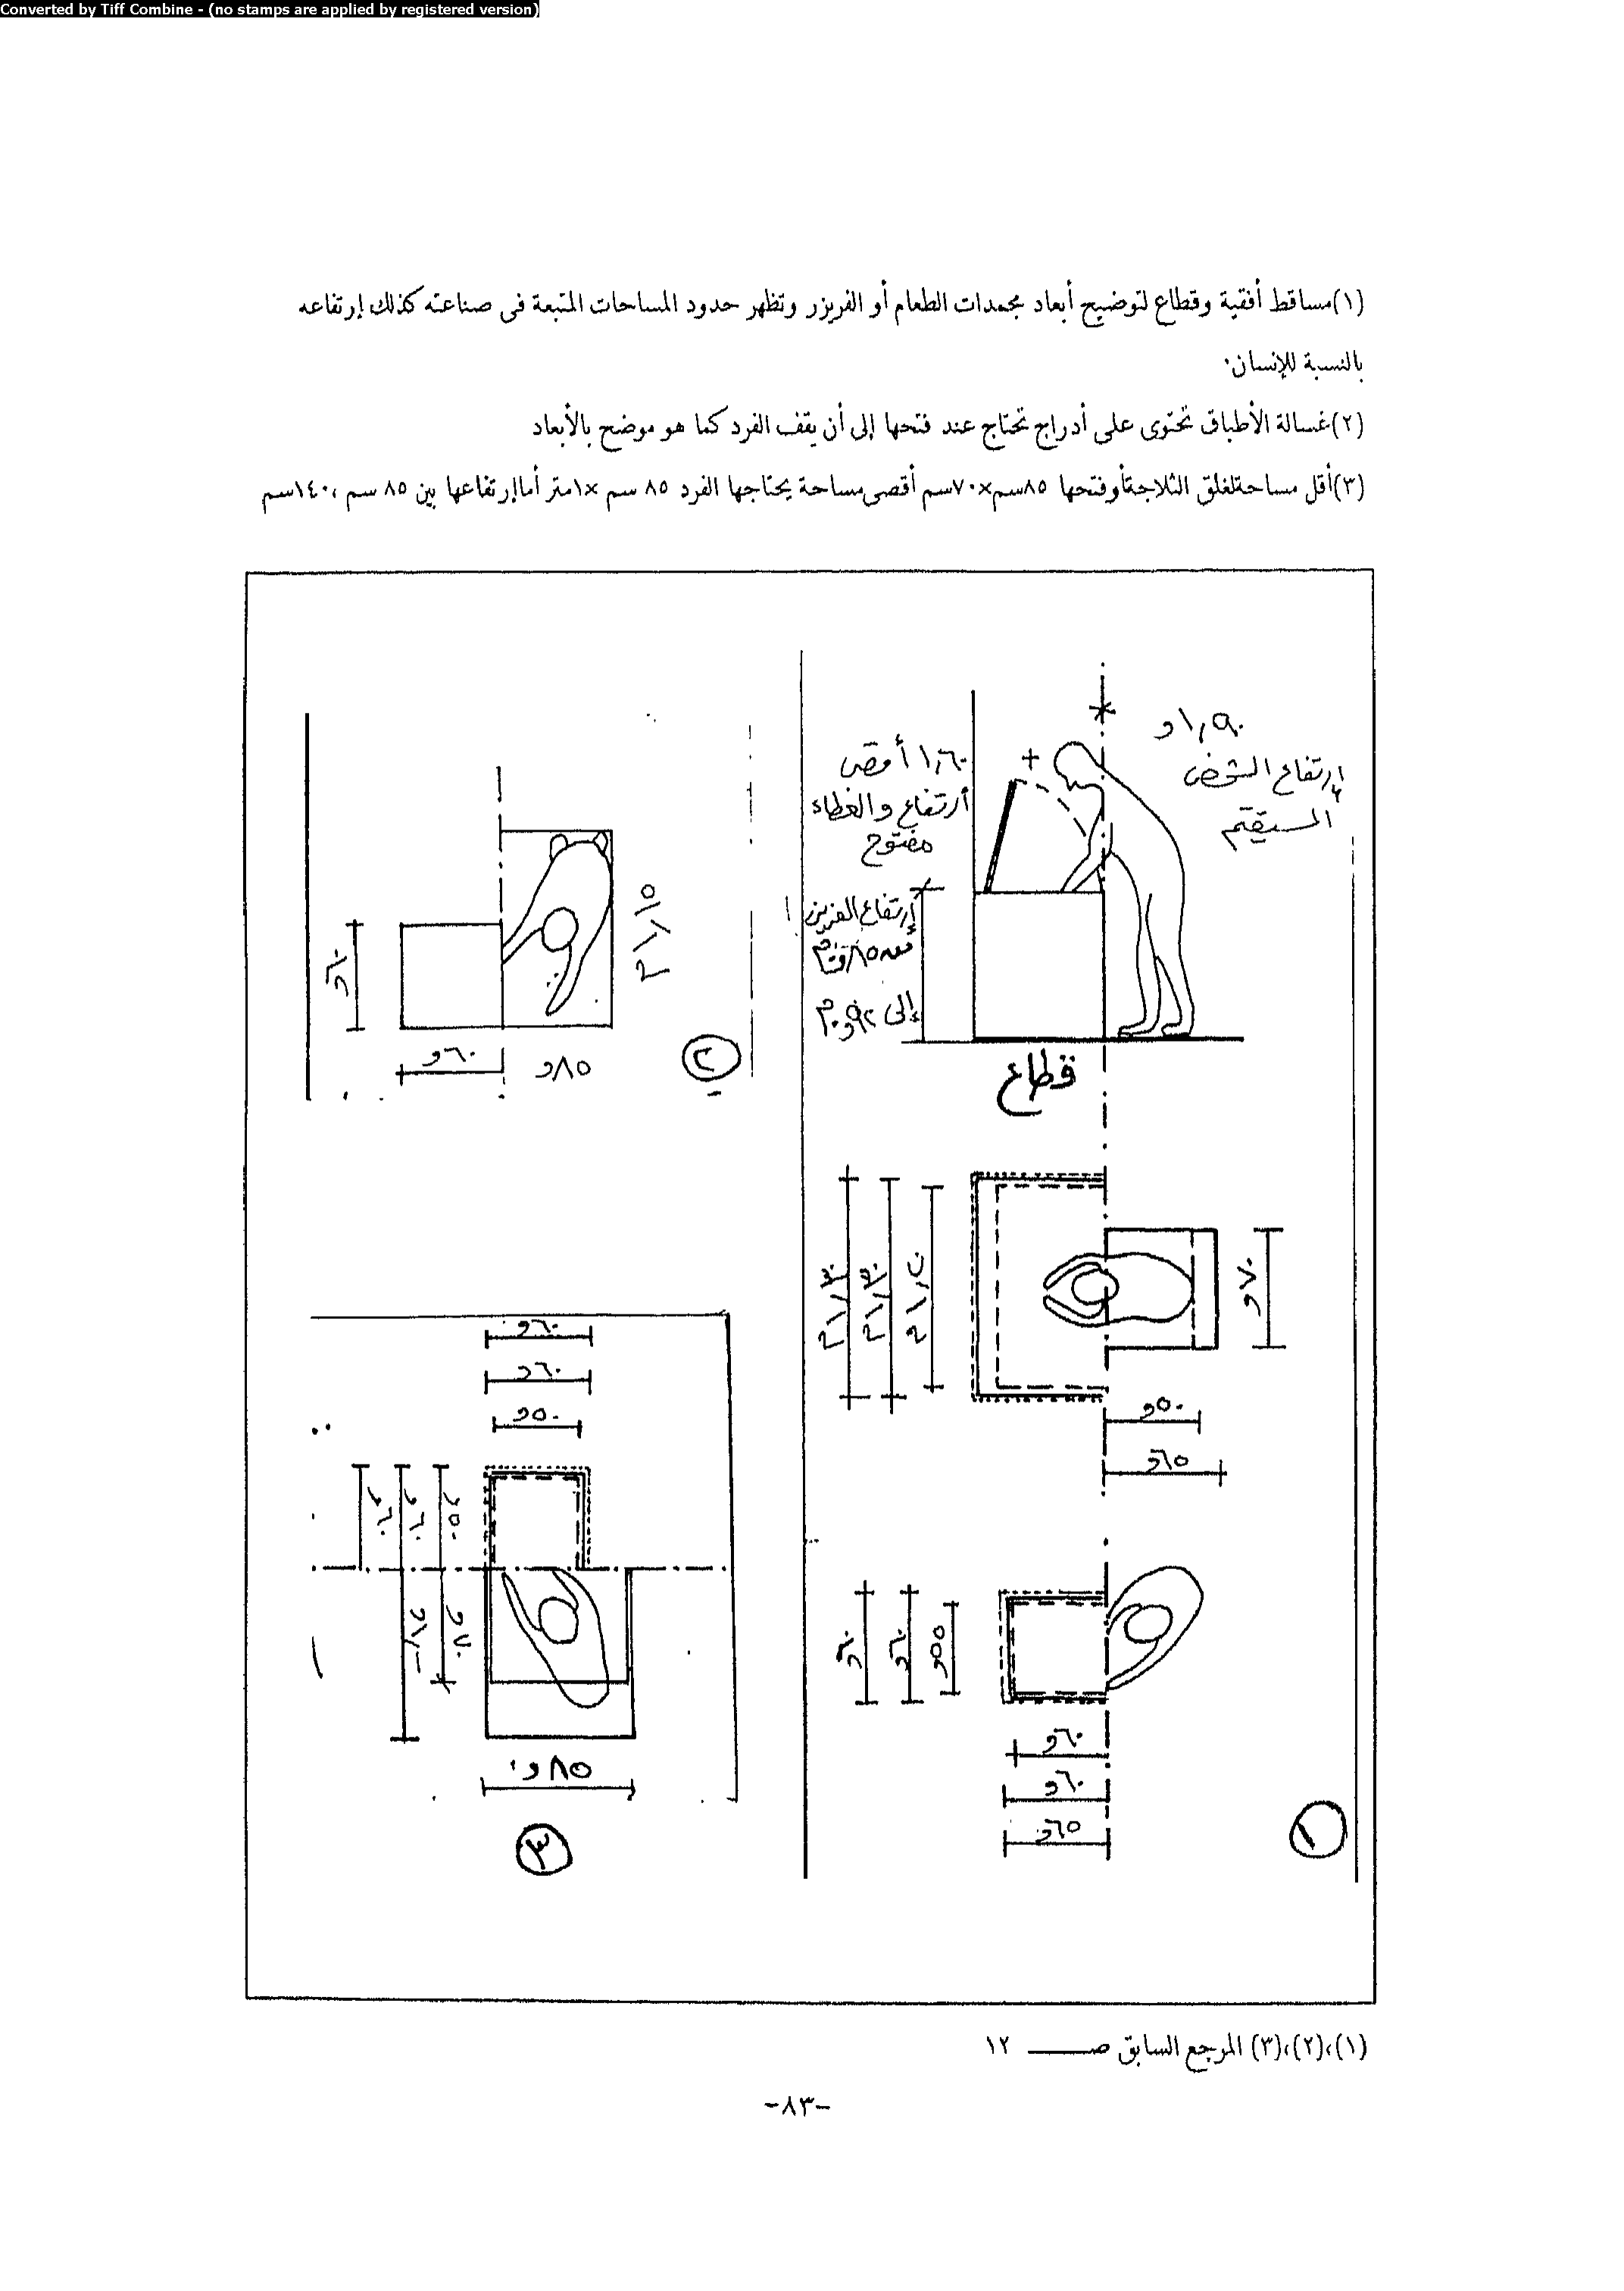 Converted by Tiff Combine - (no stamps are applied by registered version)
(١)مساقط أفقية وقطاع لتوضيح أبعاد مجمدات الطعام أو الفريزر وتظهر حدود المساحات المتبعة فى صناعته كذلك إرتفاعه
بالنسبة للإنسان.
(٢)غسالة الأطباق تحتوى على أدراج تحتاج عند فتحها إلى أن يقف الفرد كما هو موضح بالأبعاد
(٣)أقل مساحةلغلق الثلاجةأوفتحها ٨٥سم×٧٠سم أقصى مساحة يحتاجها الفرد ٨٥ سم ×١متر أماإرتفاعها بين ٨٥ سم ،١٤٠سم
١,٩٠و
إرتفاع الشخص
المستقيم
١,٦٠ أقصى
أرتفاع والغطاء
مفتوح
إرتفاع الفريزر
إلى
قطاع
١,١٥م
و٦٠
و٦٠
و٨٥
٢
١,٣٠م
١,٣٠م
و٧٠
و٥٠
و٦٥
و٦٠
و٦٠
و٥٠
و٦٠
و٦٠
و٥٠
و٧٠
و٨٥
٣
و٦٠
و٦٠
و٥٥
و٦٠
و٦٠
و٦٥
١
(١)،(٢)،(٣) المرجع السابق صـــــ ١٢
-٨٣-